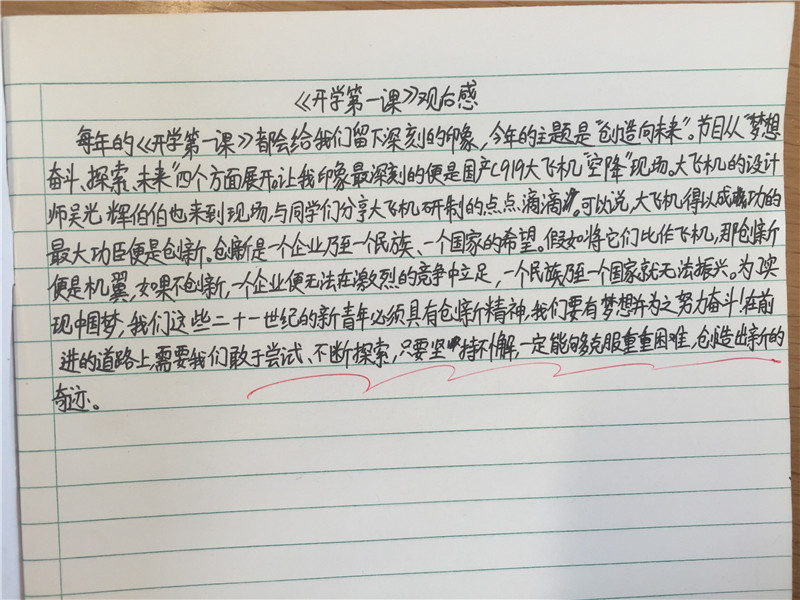 《开学第一课》观后感
每年的《开学第一课》都会给我们留下深刻的印象，今年的主题是“创造向未来”。节目从“梦想
奋斗、探索、未来”四个方面展开。让我印象最深刻的便是国产C919大飞机“空降”现场。大飞机的设计
师吴光辉伯伯也来到现场，与同学们分享大飞机研制的点点滴滴。可以说，大飞机得以成功的
最大功臣便是创新。创新是一个企业乃至一个民族、一个国家的希望。假如将它们比作飞机，那创新
便是机翼，如果不创新，一个企业便无法在激烈的竞争中立足，一个民族乃至一个国家就无法振兴。为了实
现中国梦，我们这些二十一世纪的新青年必须具有创新精神，我们要有梦想并为之努力奋斗！在前
进的道路上，需要我们敢于尝试、不断探索，只要坚持不懈，一定能够克服重重困难，创造出新的
奇迹。